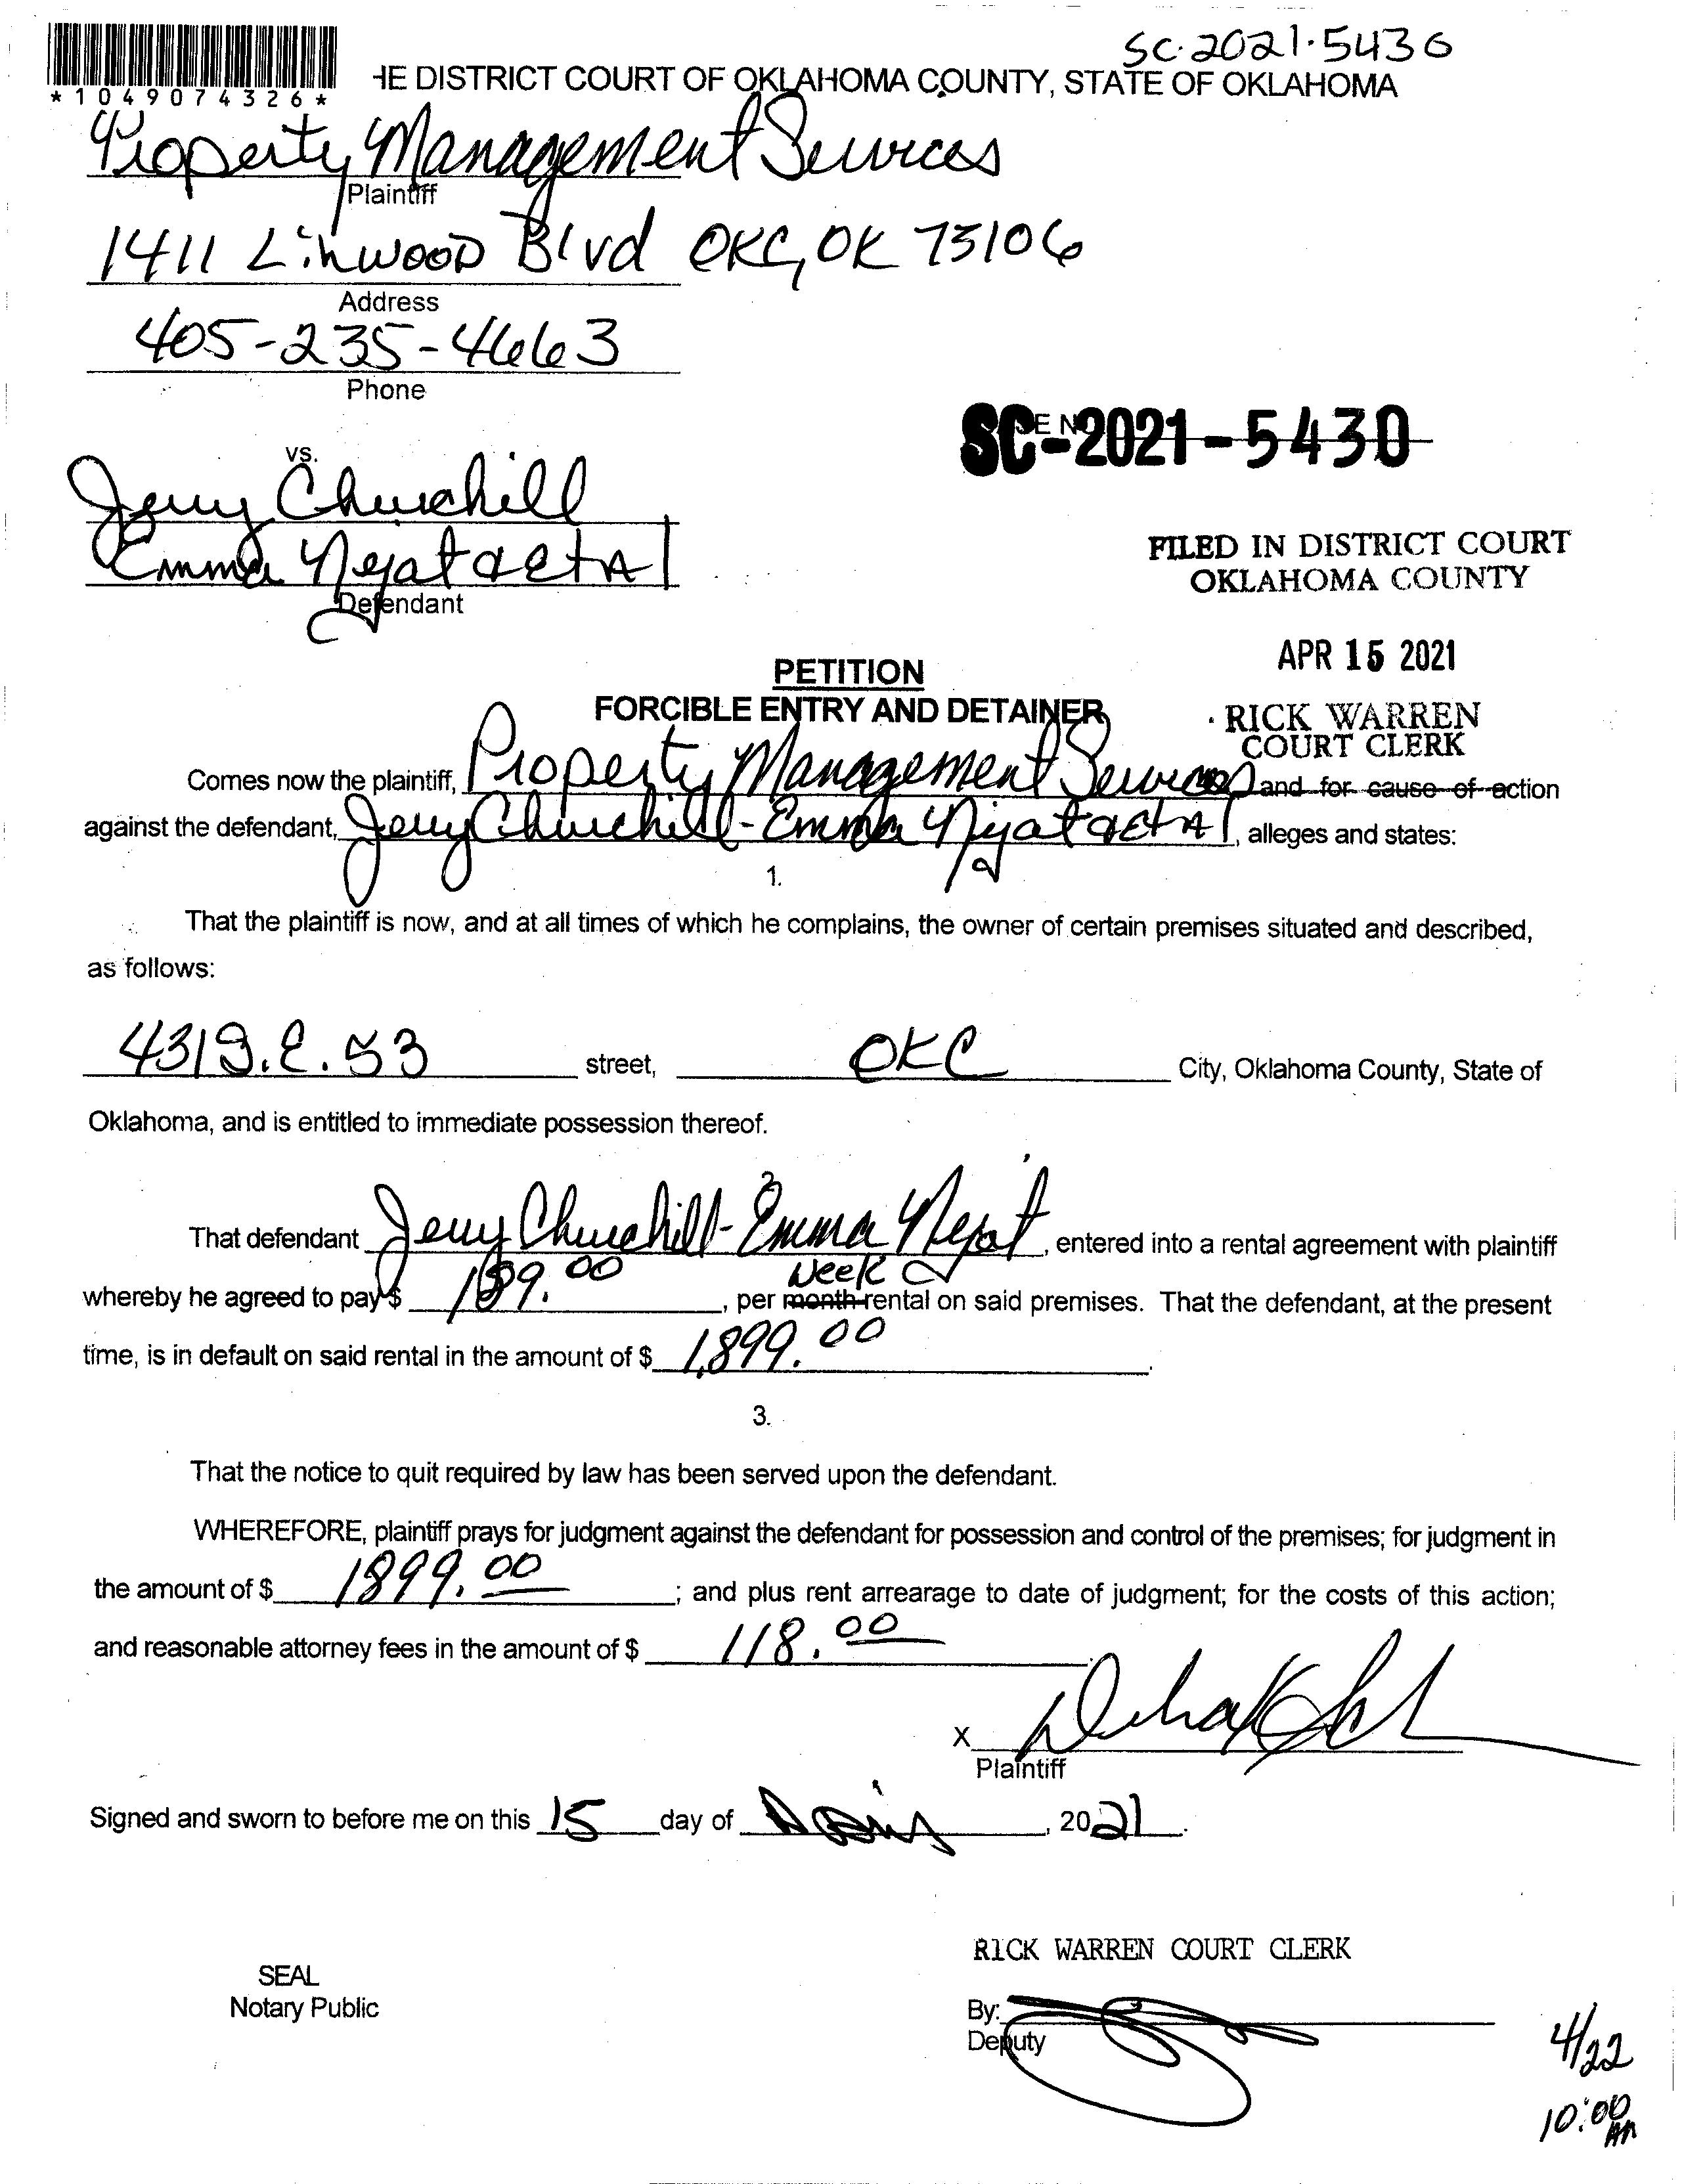 SC-2021-5436
*1049074326*
HE DISTRICT COURT OF OKLAHOMA COUNTY, STATE OF OKLAHOMA
Property Management Services
Plaintiff
1411 Linwood Blvd OKC, OK 73106
Address
405-235-4663
Phone
SC-2021-5430
vs.
Jerry Churchill
Emma et Al
Defendant
FILED IN DISTRICT COURT
OKLAHOMA COUNTY
APR 15 2021
RICK WARREN
COURT CLERK
PETITION
FORCIBLE ENTRY AND DETAINER
Comes now the plaintiff, Property Management Services and for cause of action
against the defendant, Jerry Churchill - Emma et Al, alleges and states:
1.
That the plaintiff is now, and at all times of which he complains, the owner of certain premises situated and described,
as follows:
431 S.E. 53 street, OKC City, Oklahoma County, State of
Oklahoma, and is entitled to immediate possession thereof.
2
That defendant Jerry Churchill - Emma, entered into a rental agreement with plaintiff
week
whereby he agreed to pay $ .00, per month rental on said premises. That the defendant, at the present
time, is in default on said rental in the amount of $ 1,899.00.
3.
That the notice to quit required by law has been served upon the defendant.
WHEREFORE, plaintiff prays for judgment against the defendant for possession and control of the premises; for judgment in
the amount of $ 1899.00; and plus rent arrearage to date of judgment; for the costs of this action;
and reasonable attorney fees in the amount of $ 118.00.
X
Plaintiff
Signed and sworn to before me on this 15 day of, 2021.
RICK WARREN COURT CLERK
SEAL
Notary Public
By:
Deputy
4/22
10:00
AM